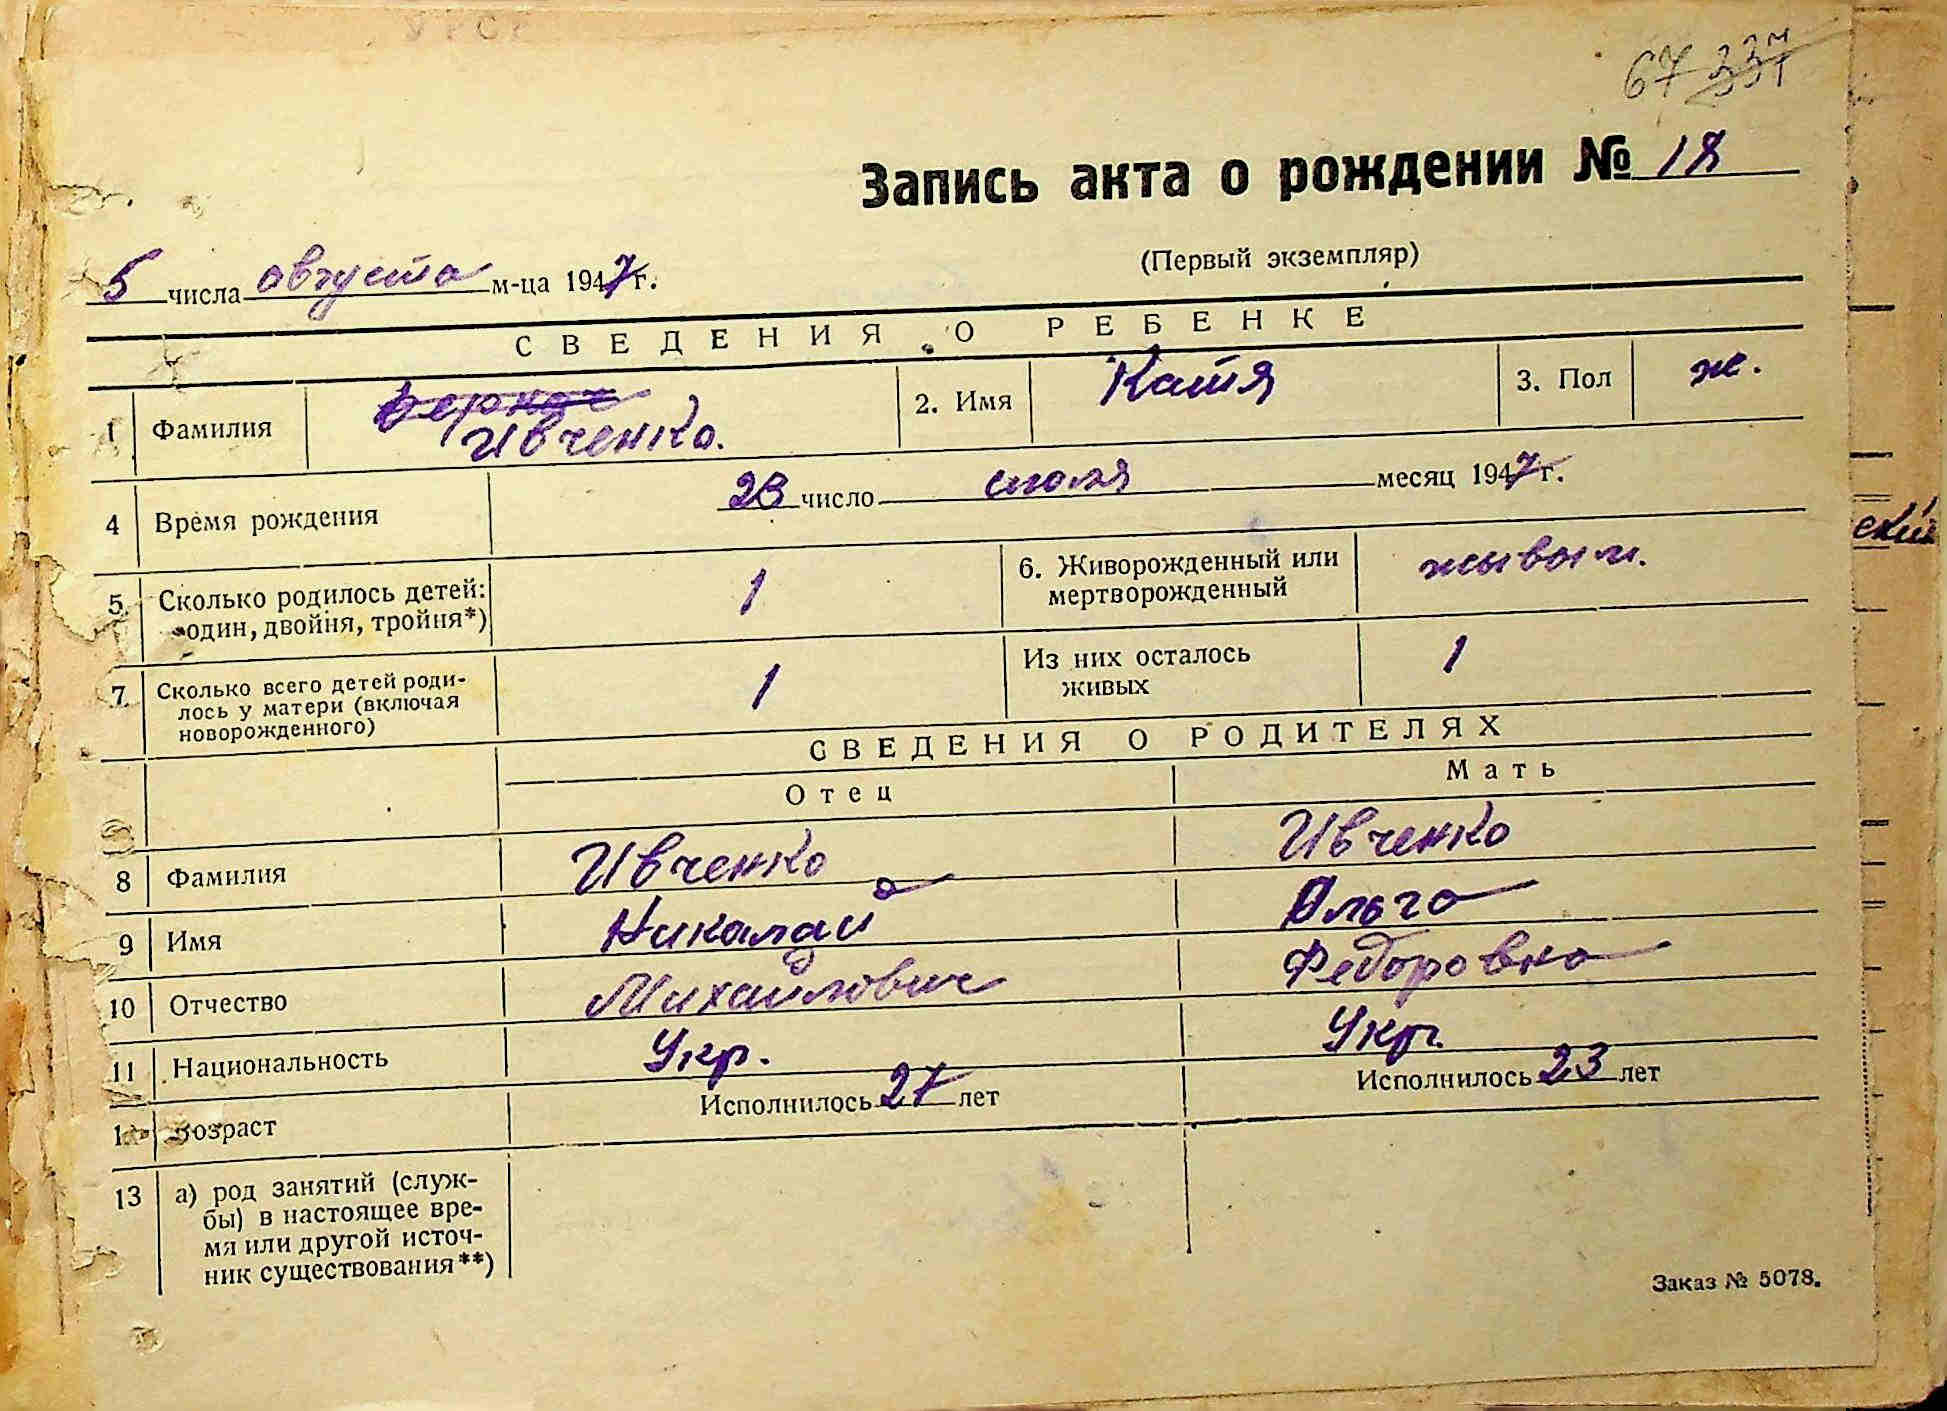 67 337
Запись акта о рождении № 18
(Первый экземпляр)
5 числа августа м-ца 1947 г.
СВЕДЕНИЯ О РЕБЕНКЕ
1 Фамилия Ивченко. 2. Имя Катя 3. Пол ж.
4 Время рождения 23 число июля месяц 1947 г.
5. Сколько родилось детей: один, двойня, тройня*) 1 6. Живорожденный или мертворожденный жывым.
7. Сколько всего детей родилось у матери (включая новорожденного) 1 Из них осталось живых 1
СВЕДЕНИЯ О РОДИТЕЛЯХ
Отец Мать
8 Фамилия Ивченко Ивченко
9 Имя Николай Ольга
10 Отчество Михайлович Федоровна
11 Национальность Укр. Укр.
Возраст Исполнилось 27 лет Исполнилось 23 лет
13 а) род занятий (служ-
бы) в настоящее вре-
мя или другой источ-
ник существования**)
Заказ № 5078.